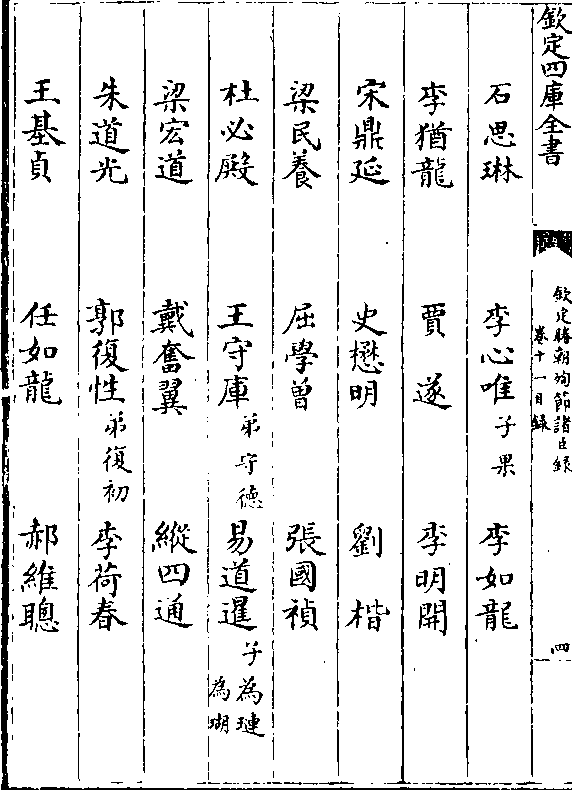 欽定四庫全書
欽定勝朝殉節諸臣錄
卷十一目錄
四
石思琳 李心唯子果 李如龍
李猶龍 賈遂 李明開
宋鼎延 史懋明 劉楷
梁民養 屈學曾 張國禎
杜必殿 王守庫弟守德 易道暹子為璉為瑚
梁宏道 戴奮翼 縱四通
朱道光 郭復性弟復初 李荷春
王基貞 任如龍 郝維聰